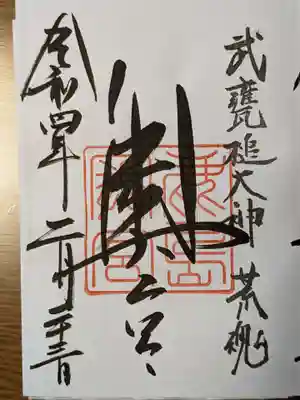 武甕槌大神 荒魂
奥宮
令和四年二月二十三日